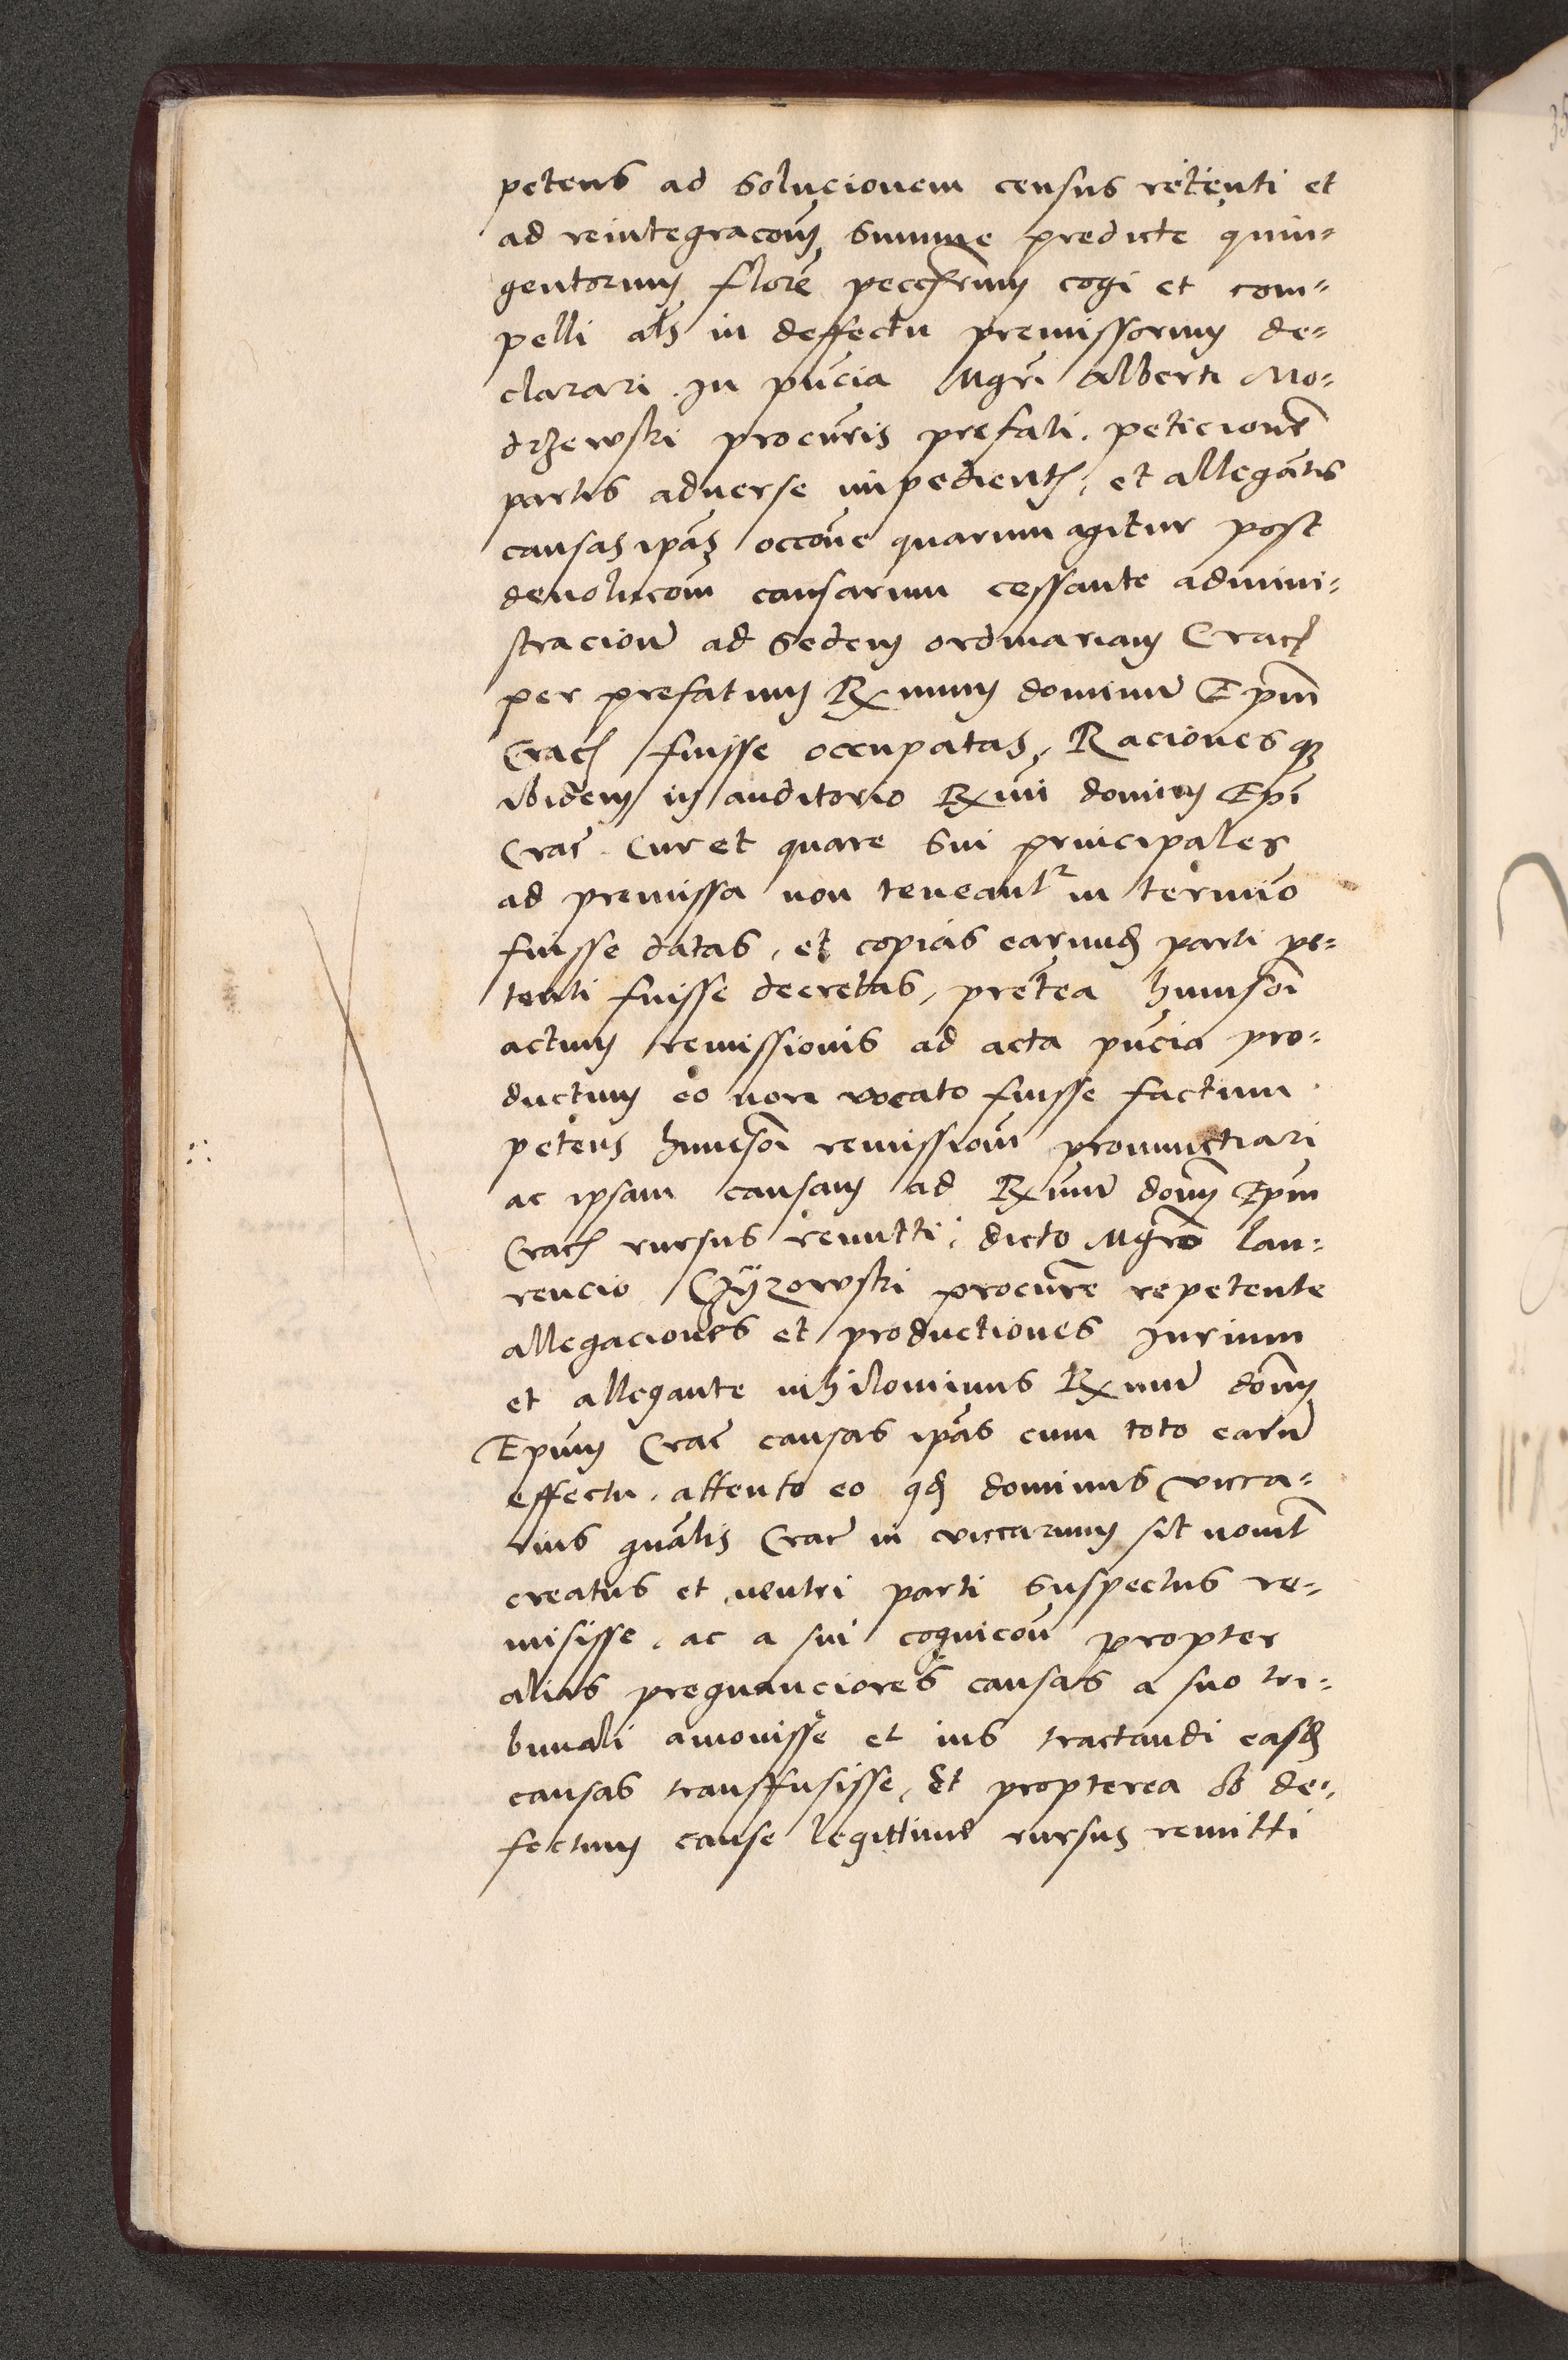 petens ad Solucionem census retenti et
ad reintegracõm Summe predicte quin-
gentorum florẽ cogi et com-
pelli als in deffectu premissorum de-
clarari. In pñcia Mgri Alberti Mo-
drzewski procuris prefati. peticionẽ
partis aduerse impedient, et allegãtis
causas ipãs occõne quarum agitur post
deuolucõm causarum cessante admini-
stracionẽ ad Sedem ordinariam Crac
per prefatum Rxmum dominũ Epm̃
Crac fuisse occupatas, Raciones q3
ibidem in auditorio Rxmi domini Epi
Crac̃. Cur et quare Sui principales
ad premissa non teneantr in termino
fuisse datas, et copias earund parti pe-
tenti fuisse decretas, preterea hmoi
actum remissionis ad acta pñcia pro-
ductum eo non vocato fuisse factum.
petens remissionẽ pronunctiari
ac ipsam causam ad Rxmum dom̃ Epm
Crac rursus remitti; dicto Mgro lau-
rencio Czÿzowski procure repetente
allegaciones et productiones Jurium
et allegante nihilominus Rxmum dom̃
Epum Crac̃ causas ipãs cum toto earũ
effectu, attento eo qd dominus vicca-
rius gñalis Crac̃ in viccarium sit nouit̃
creatus et neutri parti Suspectus re-
misisse, ac a sui cognicoñ propter
alias pregnanciores causas a suo tri-
bunali amouisse et ius tractandi easd
causas transffusisse, Et propterea ob de-
fectum cause legittime rursus remitti
35